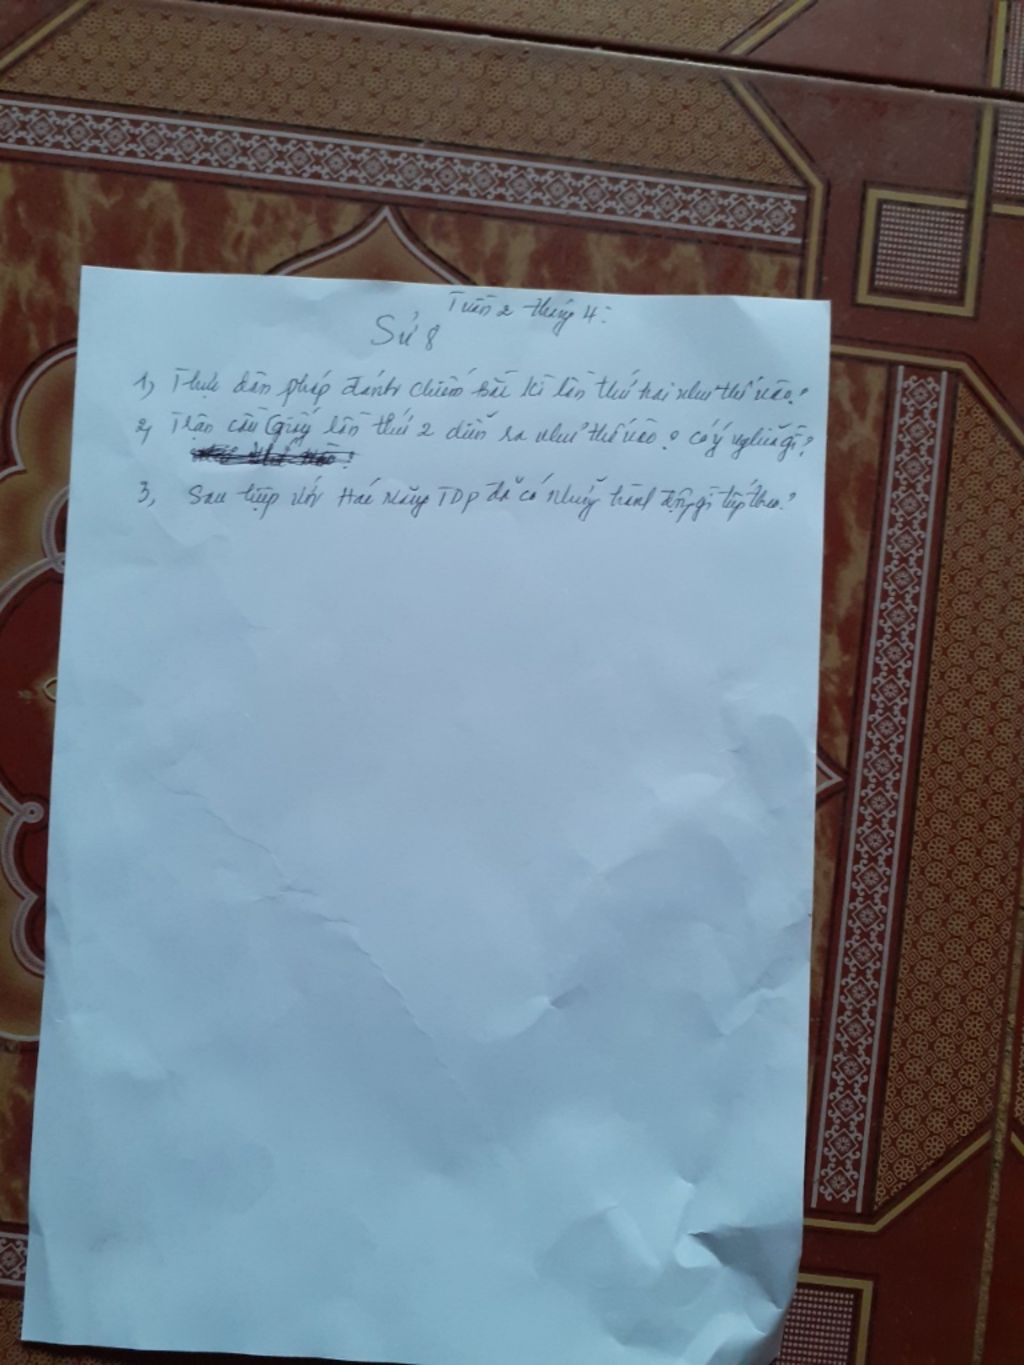 Tuần 2 tháng 4:
Sử 8
1, Thực dân pháp đánh chiếm Bắc kì lần thứ hai như thế nào?
2, Trận cầu Giấy lần thứ 2 diễn ra như thế nào? có ý nghĩa gì?
3, Sau hiệp ước Hác măng TDP đã có những hành động gì tiếp theo?